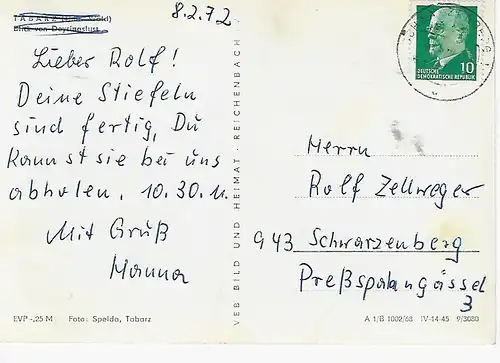 8.2.72
TABARZ (Thür. Wald)
Lieber Rolf!
Deine Stiefeln
sind fertig, Du
kannst sie bei uns
abholen. 10.30 u.
Mit Gruß
Hanna
EVP -,25 M Foto: Speldo, Tabarz
VEB BILD UND HEIMAT · REICHENBACH
10
DEUTSCHE
DEMOKRATISCHE REPUBLIK
Herrn
Rolf Zellweger
943 Schwarzenberg
Preßspalangässel
3
A 1/B 1002/68 IV-14-45 9/3080